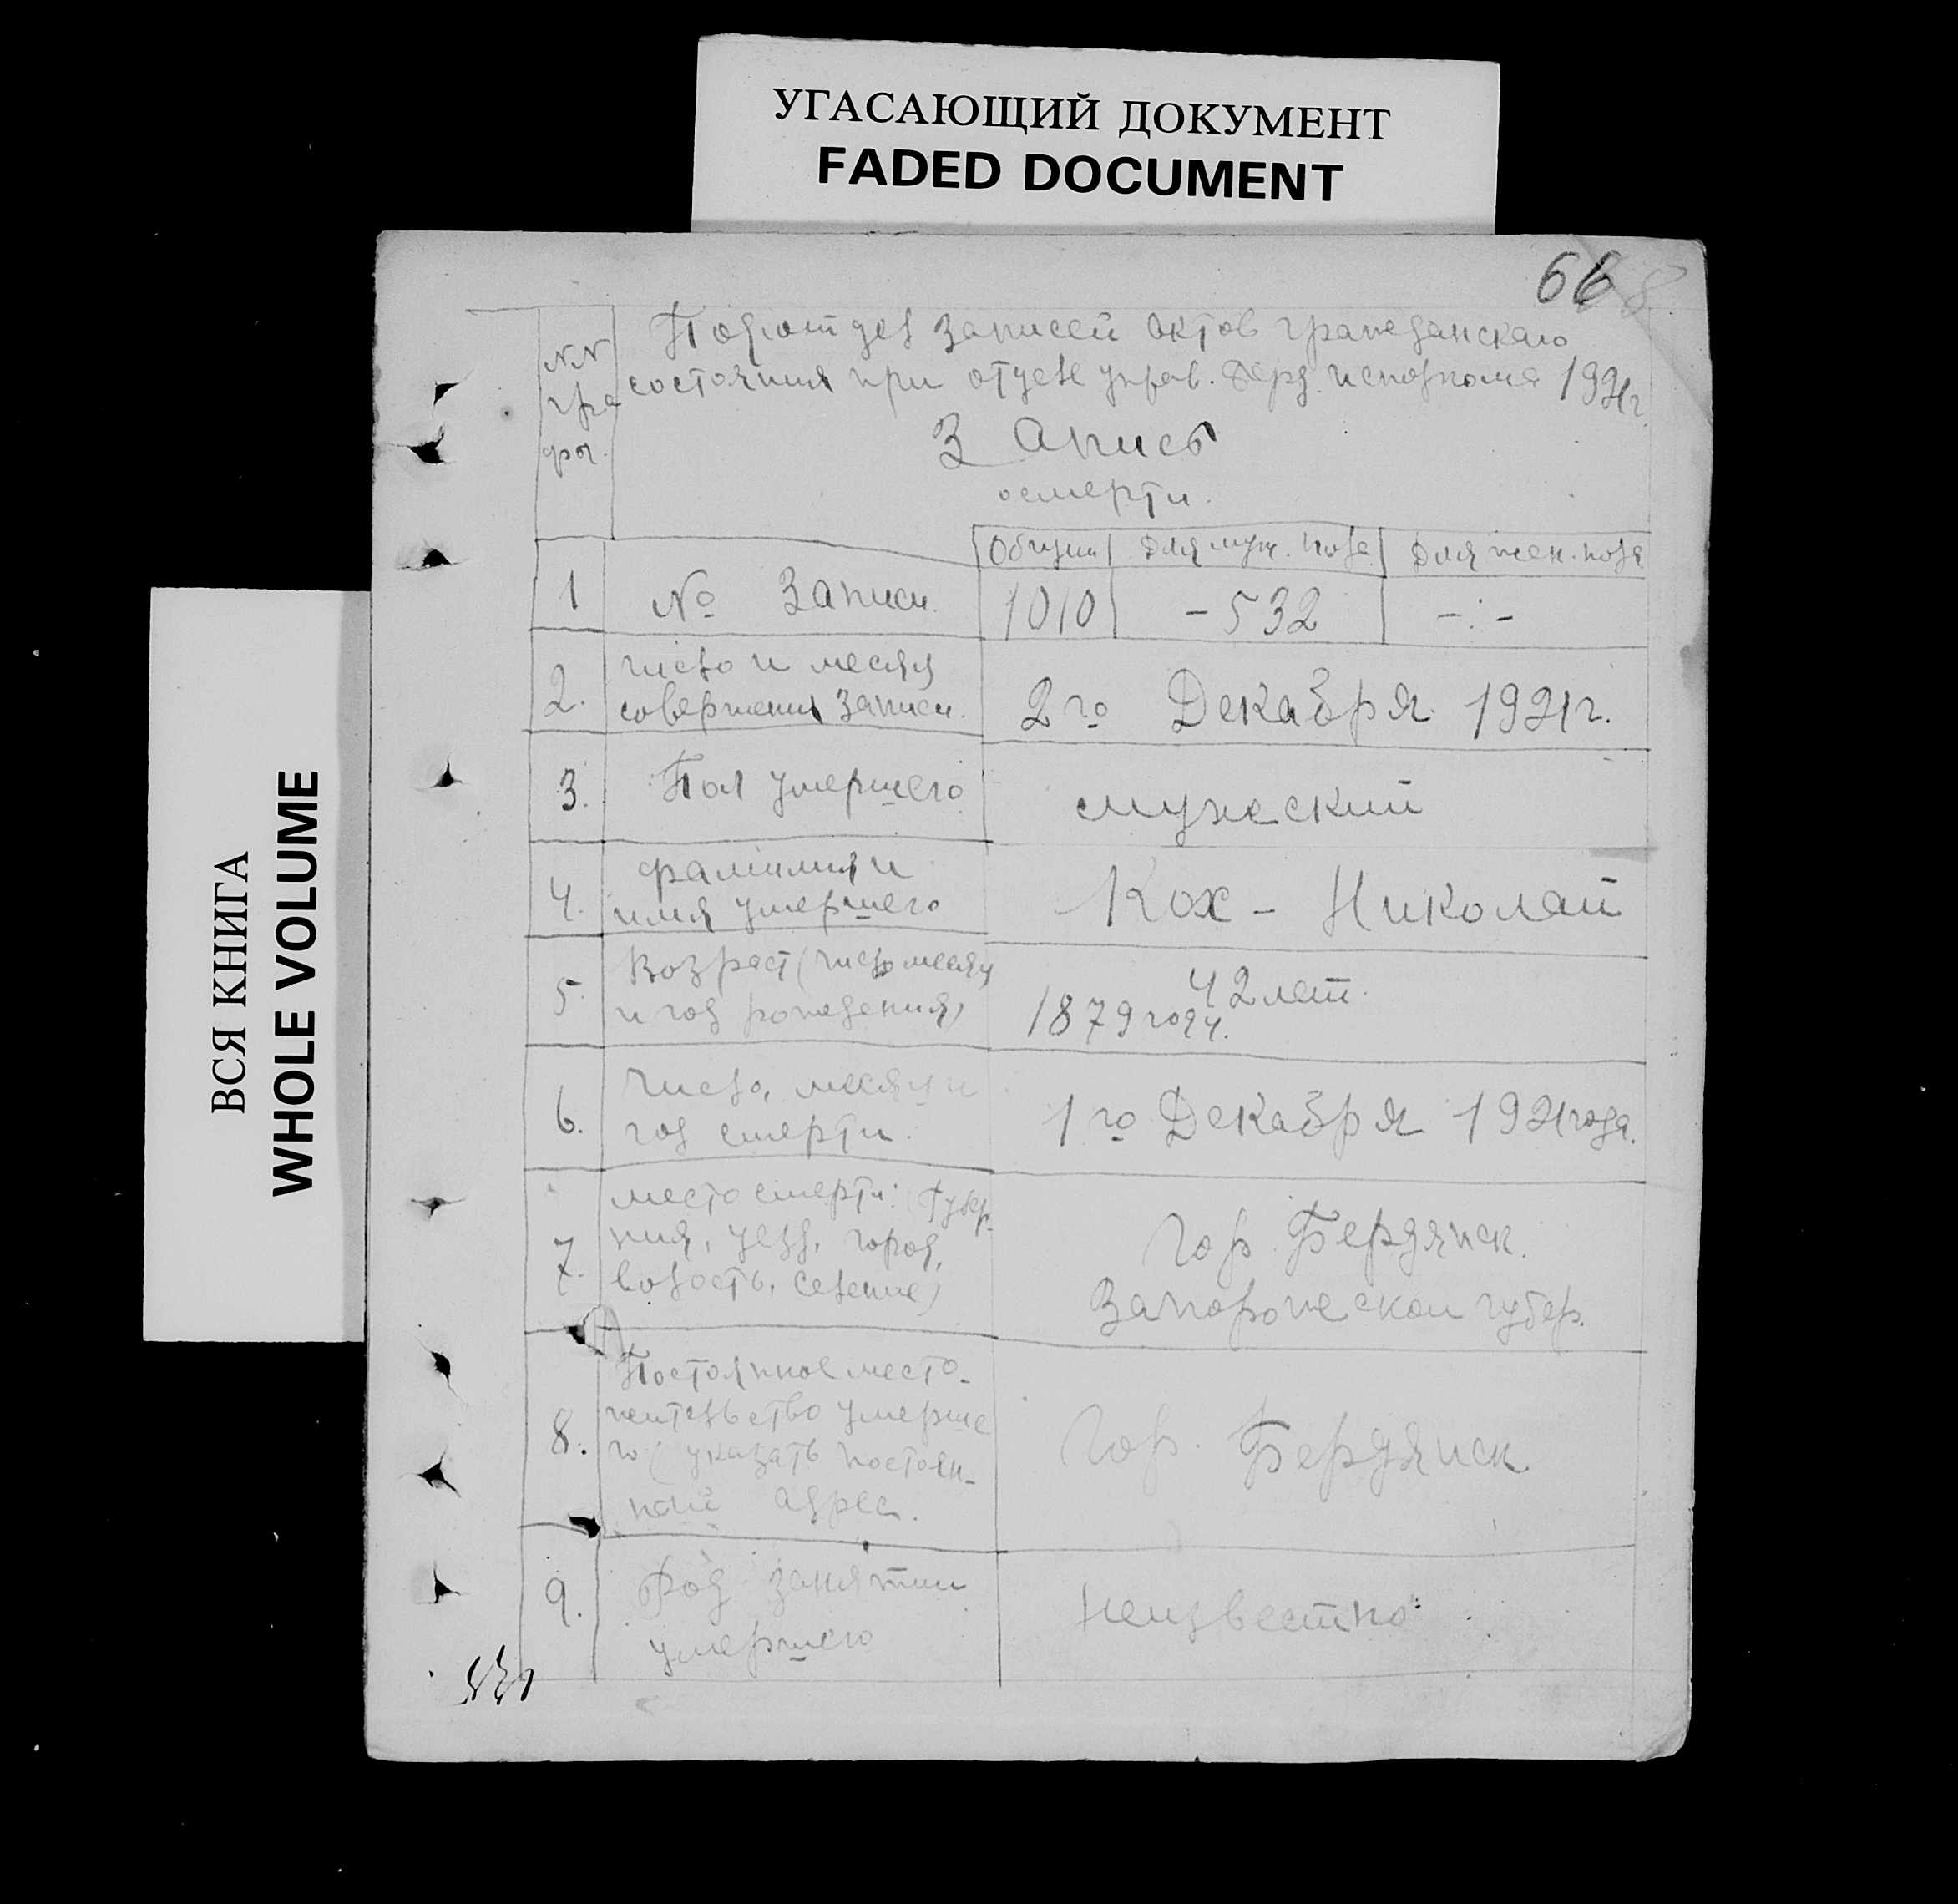 УГАСАЮЩИЙ ДОКУМЕНТ
FADED DOCUMENT
ВСЯ КНИГА
WHOLE VOLUME
№№
гра
фы.
Подотдел записей актов гражданского
состояния при отделе управ. Берд. исполкома 1921г.
Запись
о смерти.
Общий Для муж. пола Для жен. пола
1 № Записи. 1010 - 532 -:-
2. число и месяц
совершения записи. 2го Декабря 1921г.
3. Пол умершего мужеский
4. фамилия и
имя умершего Кох - Николай
5. Возраст (число месяц
и год рождения) 42 лет.
1879 году.
6. Число, месяц и
год смерти. 1го Декабря 1921 года.
7. место смерти: (Губер-
ния, уезд, город,
волость, селение) Гор. Бердянск.
Запорожской губер.
8. Постоянное место-
жительство умерше
го (указать постоян-
ный адрес. Гор. Бердянск
9. Род занятий
умершего неизвестно